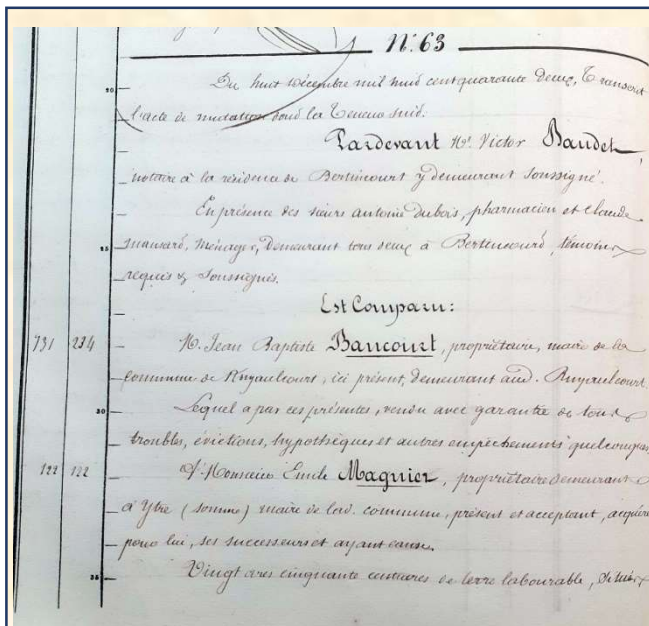 N.° 63
20 Du huit décembre mil huit cent quarante deux, Transcrit
l'acte de mutation dont la teneur suit.
Pardevant M.e Victor Baudet,
notaire à la résidence de Bertincourt y demeurant soussigné.
En présence des sieurs antoine dubois, pharmacien et Claude
25 mansard, ménager, demeurant tous deux à Bertincourt, témoins
requis & soussignés.
Est Comparu:
731 234 M. Jean Baptiste Bancourt, propriétaire, maire de la
commune de Ruyaulcourt, ici présent, demeurant aud. Ruyaulcourt
30 Lequel a par ces présentes, vendu avec garantie de tous
troubles, évictions, hypothèques et autres empêchements quelconques
122 122 A Monsieur Emile Magnier, propriétaire demeurant
à Ytre (somme) maire de lad. commune, présent et acceptant, acquéreur
pour lui, ses successeurs et ayant cause.
35 Vingt ares cinquante centiares de terre labourable, situés